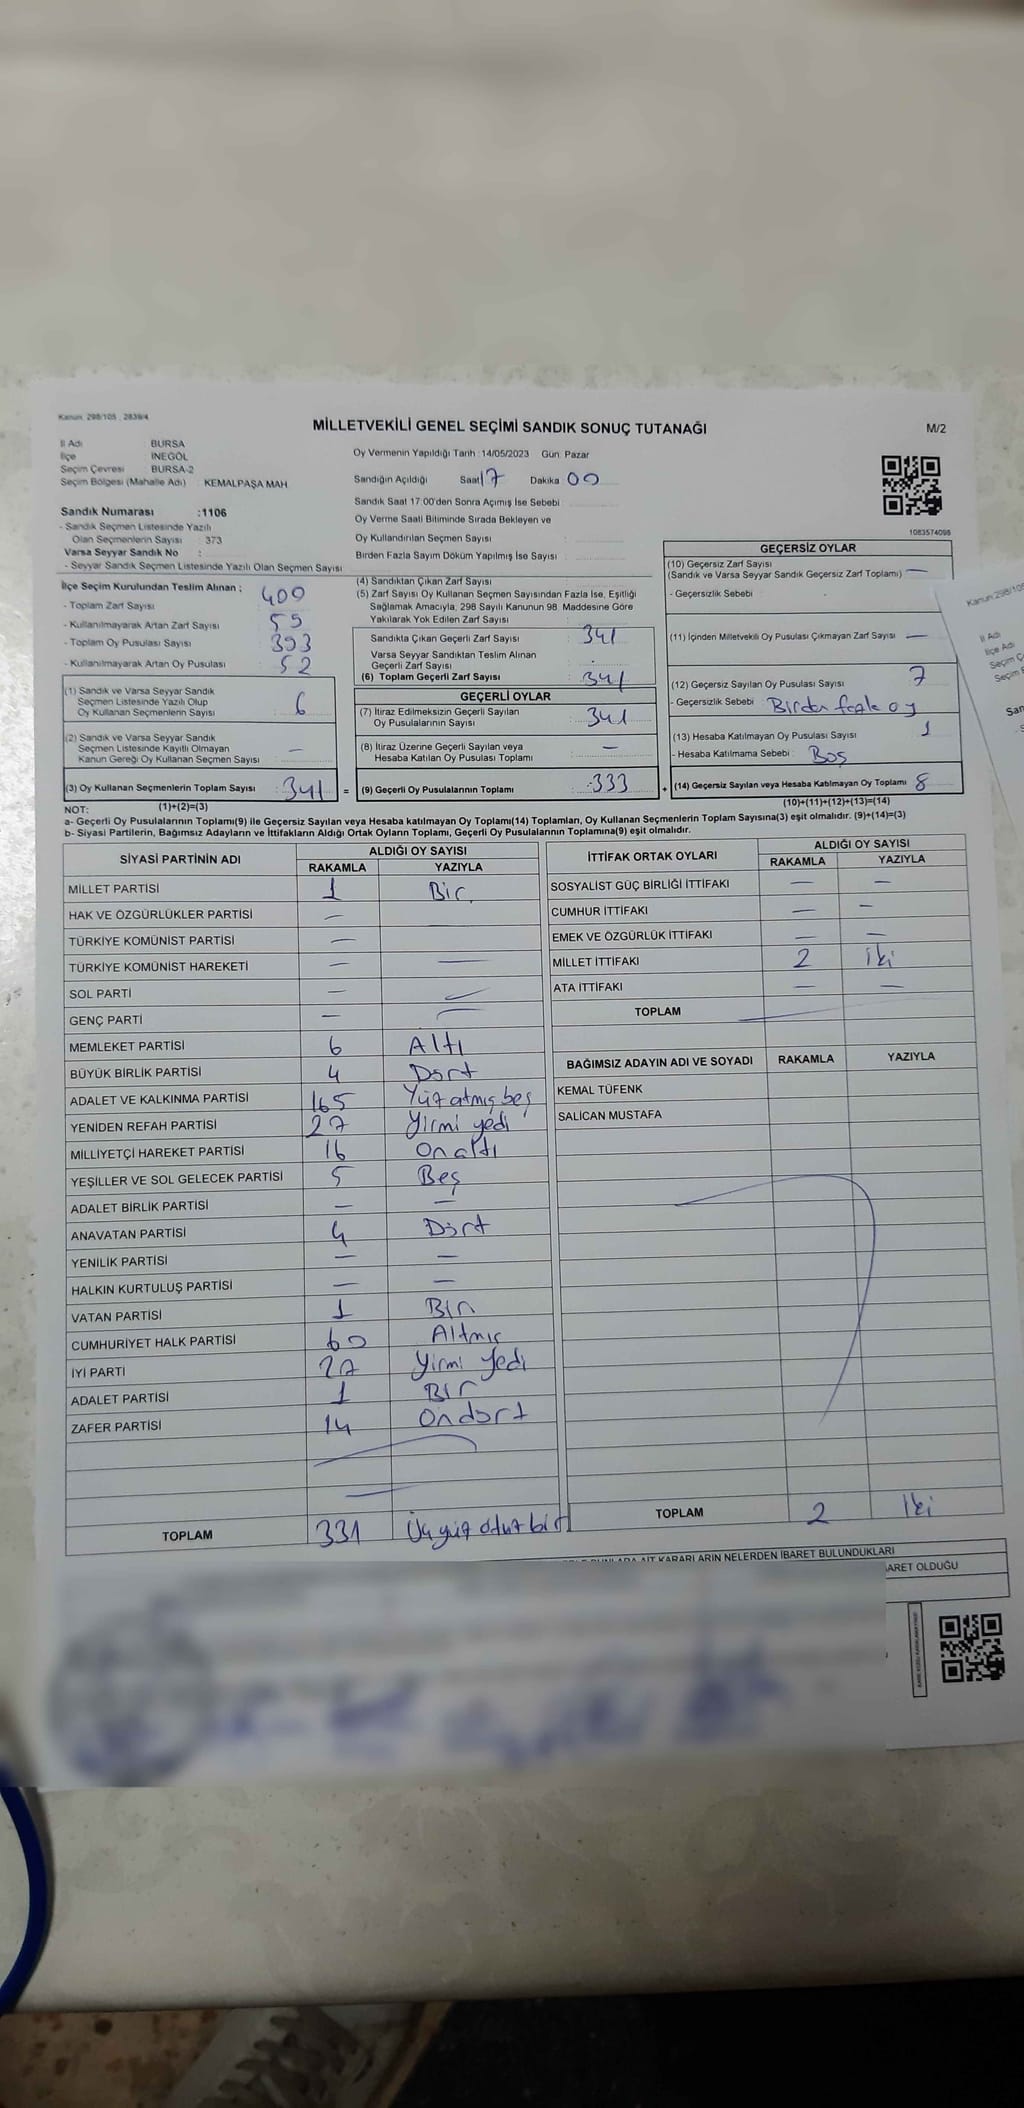 Kanun: 298/105 , 2839/4
MİLLETVEKİLİ GENEL SEÇİMİ SANDIK SONUÇ TUTANAĞI
M/2
İl Adı : BURSA
İlçe : İNEGÖL
Seçim Çevresi : BURSA-2
Seçim Bölgesi (Mahalle Adı) : KEMALPAŞA MAH.
Sandık Numarası :1106
- Sandık Seçmen Listesinde Yazılı
Olan Seçmenlerin Sayısı : 373
Varsa Seyyar Sandık No :
- Seyyar Sandık Seçmen Listesinde Yazılı Olan Seçmen Sayısı
Oy Vermenin Yapıldığı Tarih :14/05/2023 Gün: Pazar
Sandığın Açıldığı Saat 17 Dakika 00
Sandık Saat 17:00'den Sonra Açımış İse Sebebi
Oy Verme Saati Bitiminde Sırada Bekleyen ve
Oy Kullandırılan Seçmen Sayısı :
Birden Fazla Sayım Döküm Yapılmış İse Sayısı :
1083574098
İlçe Seçim Kurulundan Teslim Alınan :
- Toplam Zarf Sayısı 400
- Kullanılmayarak Artan Zarf Sayısı 59
- Toplam Oy Pusulası Sayısı 393
- Kullanılmayarak Artan Oy Pusulası 52
(1) Sandık ve Varsa Seyyar Sandık
Seçmen Listesinde Yazılı Olup
Oy Kullanan Seçmenlerin Sayısı : 6
(2) Sandık ve Varsa Seyyar Sandık
Seçmen Listesinde Kayıtlı Olmayan
Kanun Gereği Oy Kullanan Seçmen Sayısı : —
(3) Oy Kullanan Seçmenlerin Toplam Sayısı : 341 =
(4) Sandıktan Çıkan Zarf Sayısı :
(5) Zarf Sayısı Oy Kullanan Seçmen Sayısından Fazla İse, Eşitliği
Sağlamak Amacıyla, 298 Sayılı Kanunun 98. Maddesine Göre
Yakılarak Yok Edilen Zarf Sayısı :
Sandıkta Çıkan Geçerli Zarf Sayısı : 341
Varsa Seyyar Sandıktan Teslim Alınan
Geçerli Zarf Sayısı :
(6) Toplam Geçerli Zarf Sayısı : 341
GEÇERLİ OYLAR
(7) İtiraz Edilmeksizin Geçerli Sayılan
Oy Pusulalarının Sayısı : 341
(8) İtiraz Üzerine Geçerli Sayılan veya
Hesaba Katılan Oy Pusulası Toplamı : —
(9) Geçerli Oy Pusulalarının Toplamı : 333 +
GEÇERSİZ OYLAR
(10) Geçersiz Zarf Sayısı
(Sandık ve Varsa Seyyar Sandık Geçersiz Zarf Toplamı) —
- Geçersizlik Sebebi :
(11) İçinden Milletvekili Oy Pusulası Çıkmayan Zarf Sayısı —
(12) Geçersiz Sayılan Oy Pusulası Sayısı 7
- Geçersizlik Sebebi : Birden fazla oy
(13) Hesaba Katılmayan Oy Pusulası Sayısı 1
- Hesaba Katılmama Sebebi : Boş
(14) Geçersiz Sayılan veya Hesaba Katılmayan Oy Toplamı 8
NOT: (1)+(2)=(3)
(10)+(11)+(12)+(13)=(14)
a- Geçerli Oy Pusulalarının Toplamı(9) ile Geçersiz Sayılan veya Hesaba katılmayan Oy Toplamı(14) Toplamları, Oy Kullanan Seçmenlerin Toplam Sayısına(3) eşit olmalıdır. (9)+(14)=(3)
b- Siyasi Partilerin, Bağımsız Adayların ve İttifakların Aldığı Ortak Oyların Toplamı, Geçerli Oy Pusulalarının Toplamına(9) eşit olmalıdır.
SİYASİ PARTİNİN ADI ALDIĞI OY SAYISI
RAKAMLA YAZIYLA
MİLLET PARTİSİ 1 Bir
HAK VE ÖZGÜRLÜKLER PARTİSİ —
TÜRKİYE KOMÜNİST PARTİSİ —
TÜRKİYE KOMÜNİST HAREKETİ — —
SOL PARTİ — —
GENÇ PARTİ — —
MEMLEKET PARTİSİ 6 Altı
BÜYÜK BİRLİK PARTİSİ 4 Dört
ADALET VE KALKINMA PARTİSİ 165 Yüz atmış beş
YENİDEN REFAH PARTİSİ 27 Yirmi yedi
MİLLİYETÇİ HAREKET PARTİSİ 16 On altı
YEŞİLLER VE SOL GELECEK PARTİSİ 5 Beş
ADALET BİRLİK PARTİSİ — —
ANAVATAN PARTİSİ 4 Dört
YENİLİK PARTİSİ — —
HALKIN KURTULUŞ PARTİSİ — —
VATAN PARTİSİ 1 Bir
CUMHURİYET HALK PARTİSİ 60 Altmış
İYİ PARTİ 27 Yirmi yedi
ADALET PARTİSİ 1 Bir
ZAFER PARTİSİ 14 On dört
TOPLAM 331 Üçyüz otuz bir
İTTİFAK ORTAK OYLARI ALDIĞI OY SAYISI
RAKAMLA YAZIYLA
SOSYALİST GÜÇ BİRLİĞİ İTTİFAKI — —
CUMHUR İTTİFAKI — —
EMEK VE ÖZGÜRLÜK İTTİFAKI — —
MİLLET İTTİFAKI 2 İki
ATA İTTİFAKI — —
TOPLAM
BAĞIMSIZ ADAYIN ADI VE SOYADI RAKAMLA YAZIYLA
KEMAL TÜFENK
SALİCAN MUSTAFA
TOPLAM 2 İki
KARARLARIN NELERDEN İBARET BULUNDUKLARI
İBARET OLDUĞU
Kanun:298/105
İl Adı
İlçe Adı
Seçim Ç
Seçim
San